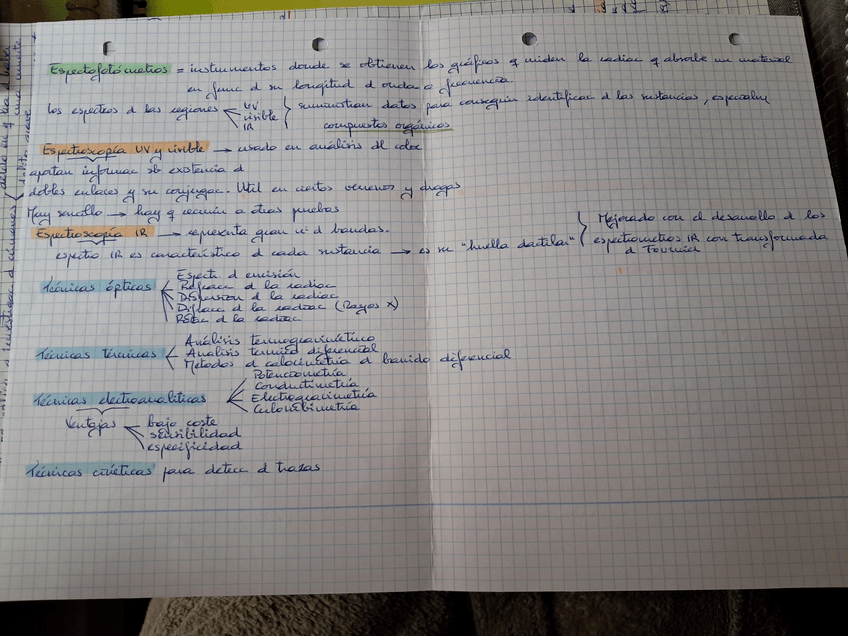 Espectofotómetros = instrumentos donde se obtienen los gráficos q miden la radiac q absorbe un material
en func d su longitud d onda o frecuencia.
los espectros d las regiones UV
visible
IR
suministran datos para conseguir identificac d las sustancias, especialm
compuestos orgánicos
Espectroscopía UV y visible → usado en análisis dl color
aportan informac sb existencia d
dobles enlaces y su conjugac. Util en ciertos venenos y drogas
Muy sencillo → hay q recurrir a otras pruebas
Espectroscopía IR → representa gran nº d bandas.
espectro IR es característico d cada sustancia → es su "huella dactilar"
Mejorado con el desarrollo d los
espectrometros IR con transformada
d Fourier
Técnicas ópticas
Espect d emisión
Refracc d la radiac
Dispersion d la radiac
Difracc d la radiac (Rayos X)
Rotac d la radiac
Técnicas térmicas
Análisis termogravimétrico
Analisis termico diferencial
Metodos d calorimetria d barrido diferencial
Técnicas electroanaliticas
Potenciometría
Conductimetría
Electrogravimetría
Culombimetría
Ventajas
bajo coste
sensibilidad
especificidad
Técnicas cinéticas para detecc d trazas